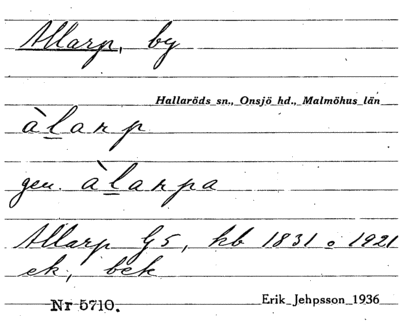 Allarp, by
Hallaröds sn., Onsjö hd., Malmöhus län
àlarp
gen. àlarpa
Allarp G5, kb 1831 o 1921
ek, bek
Nr 5710.
Erik Jehpsson 1936